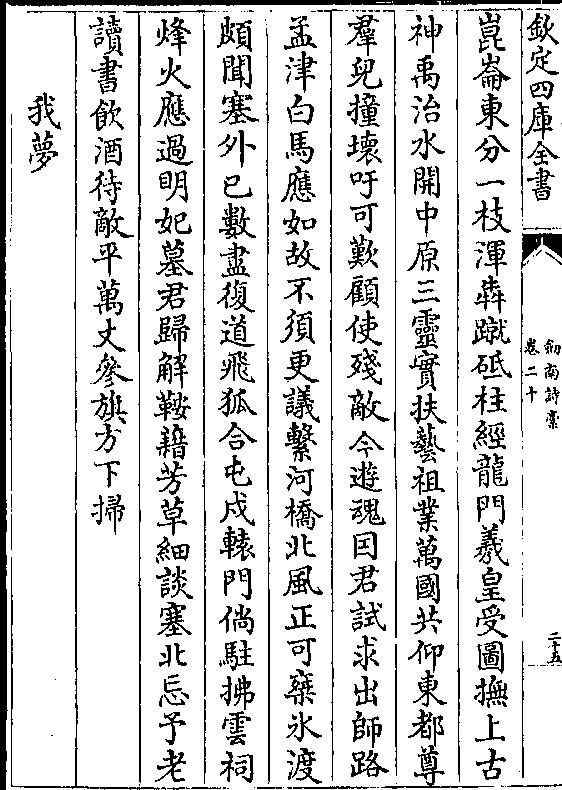 欽定四庫全書
劒南詩藁
卷二十
二十五
崑崙東分一枝渾犇蹴砥柱經龍門羲皇受圖撫上古
神禹治水開中原三靈實扶藝祖業萬國共仰東都尊
羣兒撞壞吁可歎顧使殘敵今遊魂因君試求出師路
孟津白馬應如故不須更議繫河橋北風正可乗氷渡
頗聞塞外已數盡復道飛狐合屯戍轅門倘駐拂雲祠
烽火應過眀妃墓君歸解鞍藉芳草細談塞北忘予老
讀書飲酒待敵平萬丈參旗方下掃
我夢